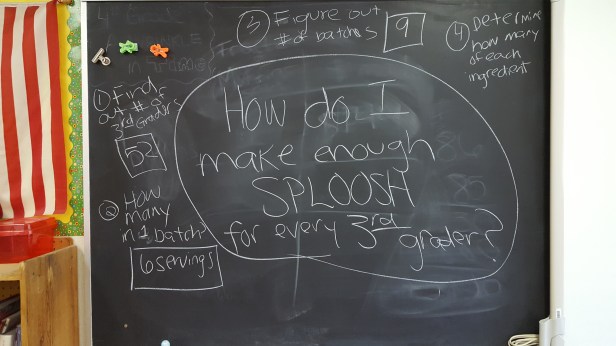 ① Find
out # of
3rd Graders
52
② How
many
in 1 batch?
6 servings
③ Figure out
# of batches
9
④ Determine
how many
of each
ingredient
How do I
make enough
SPLOOSH
for every 3rd
grader?